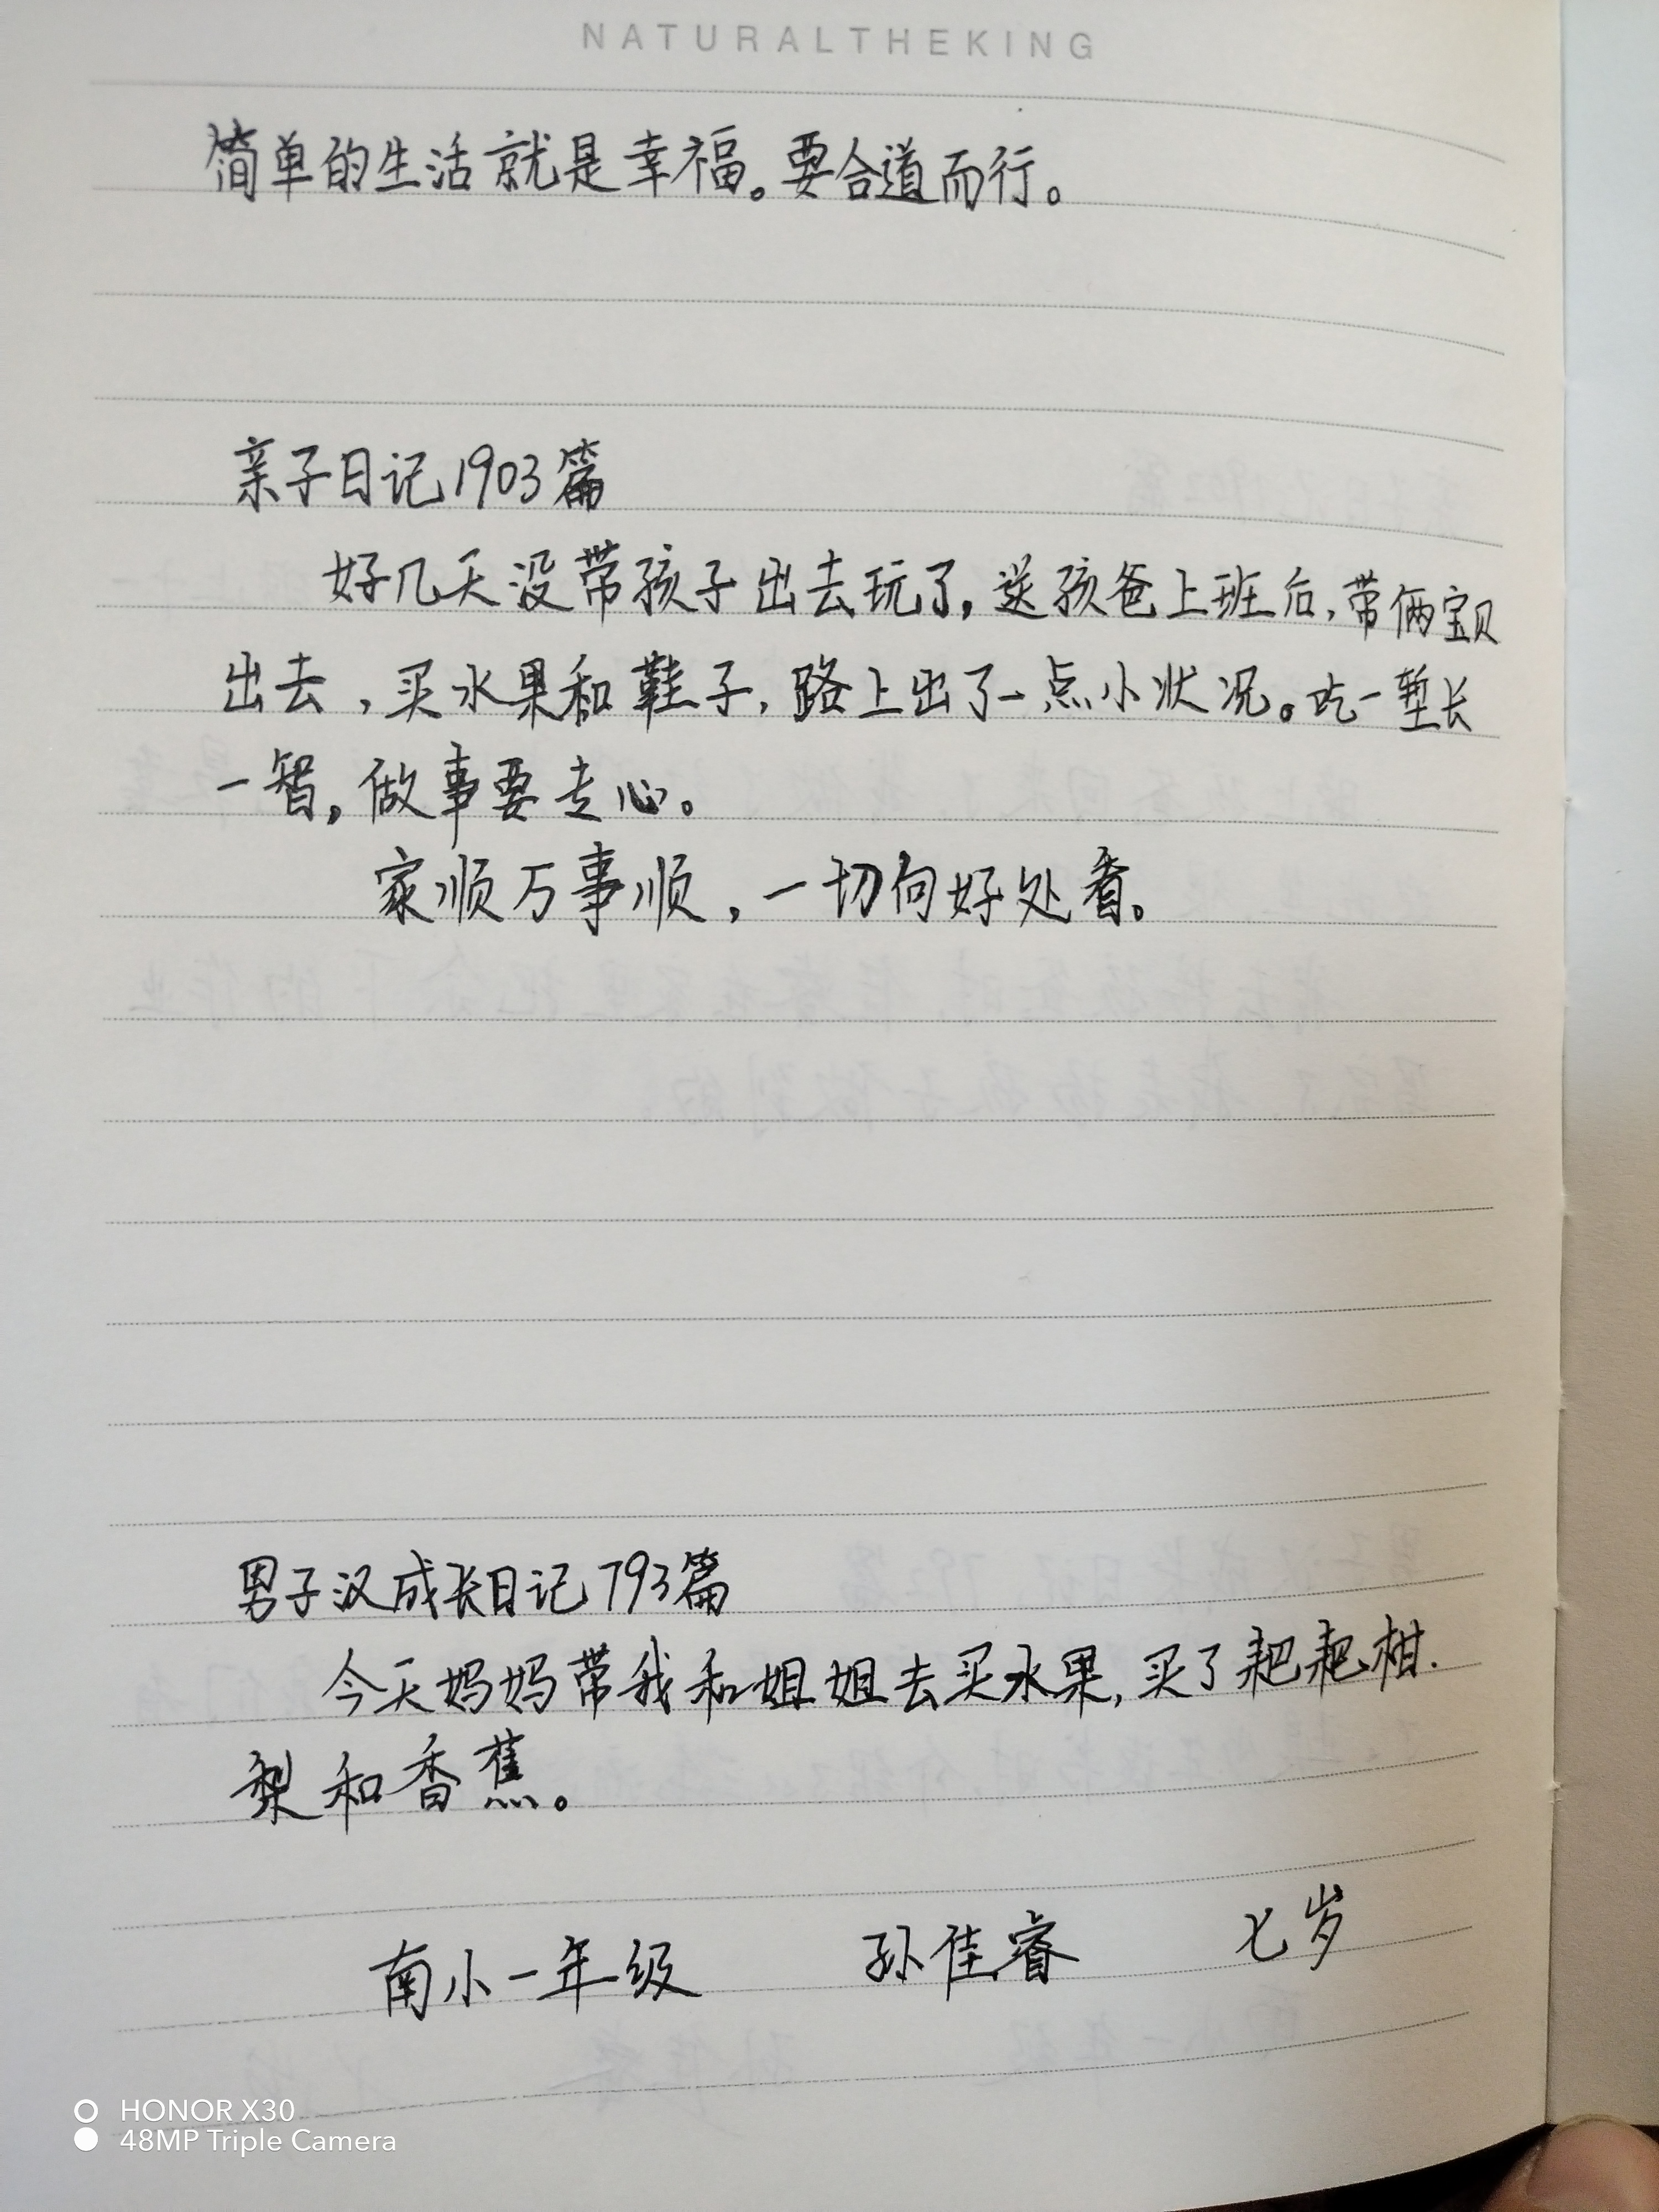 NATURALTHEKING
简单的生活就是幸福。要合道而行。
亲子日记1903篇
好几天没带孩子出去玩了,送孩爸上班后,带俩宝贝
出去,买水果和鞋子,路上出了一点小状况。吃一堑长
一智,做事要走心。
家顺万事顺,一切向好处看。
男子汉成长日记793篇
今天妈妈带我和姐姐去买水果,买了耙耙柑.
梨和香蕉。
南小一年级 孙佳睿 七岁
HONOR X30
48MP Triple Camera